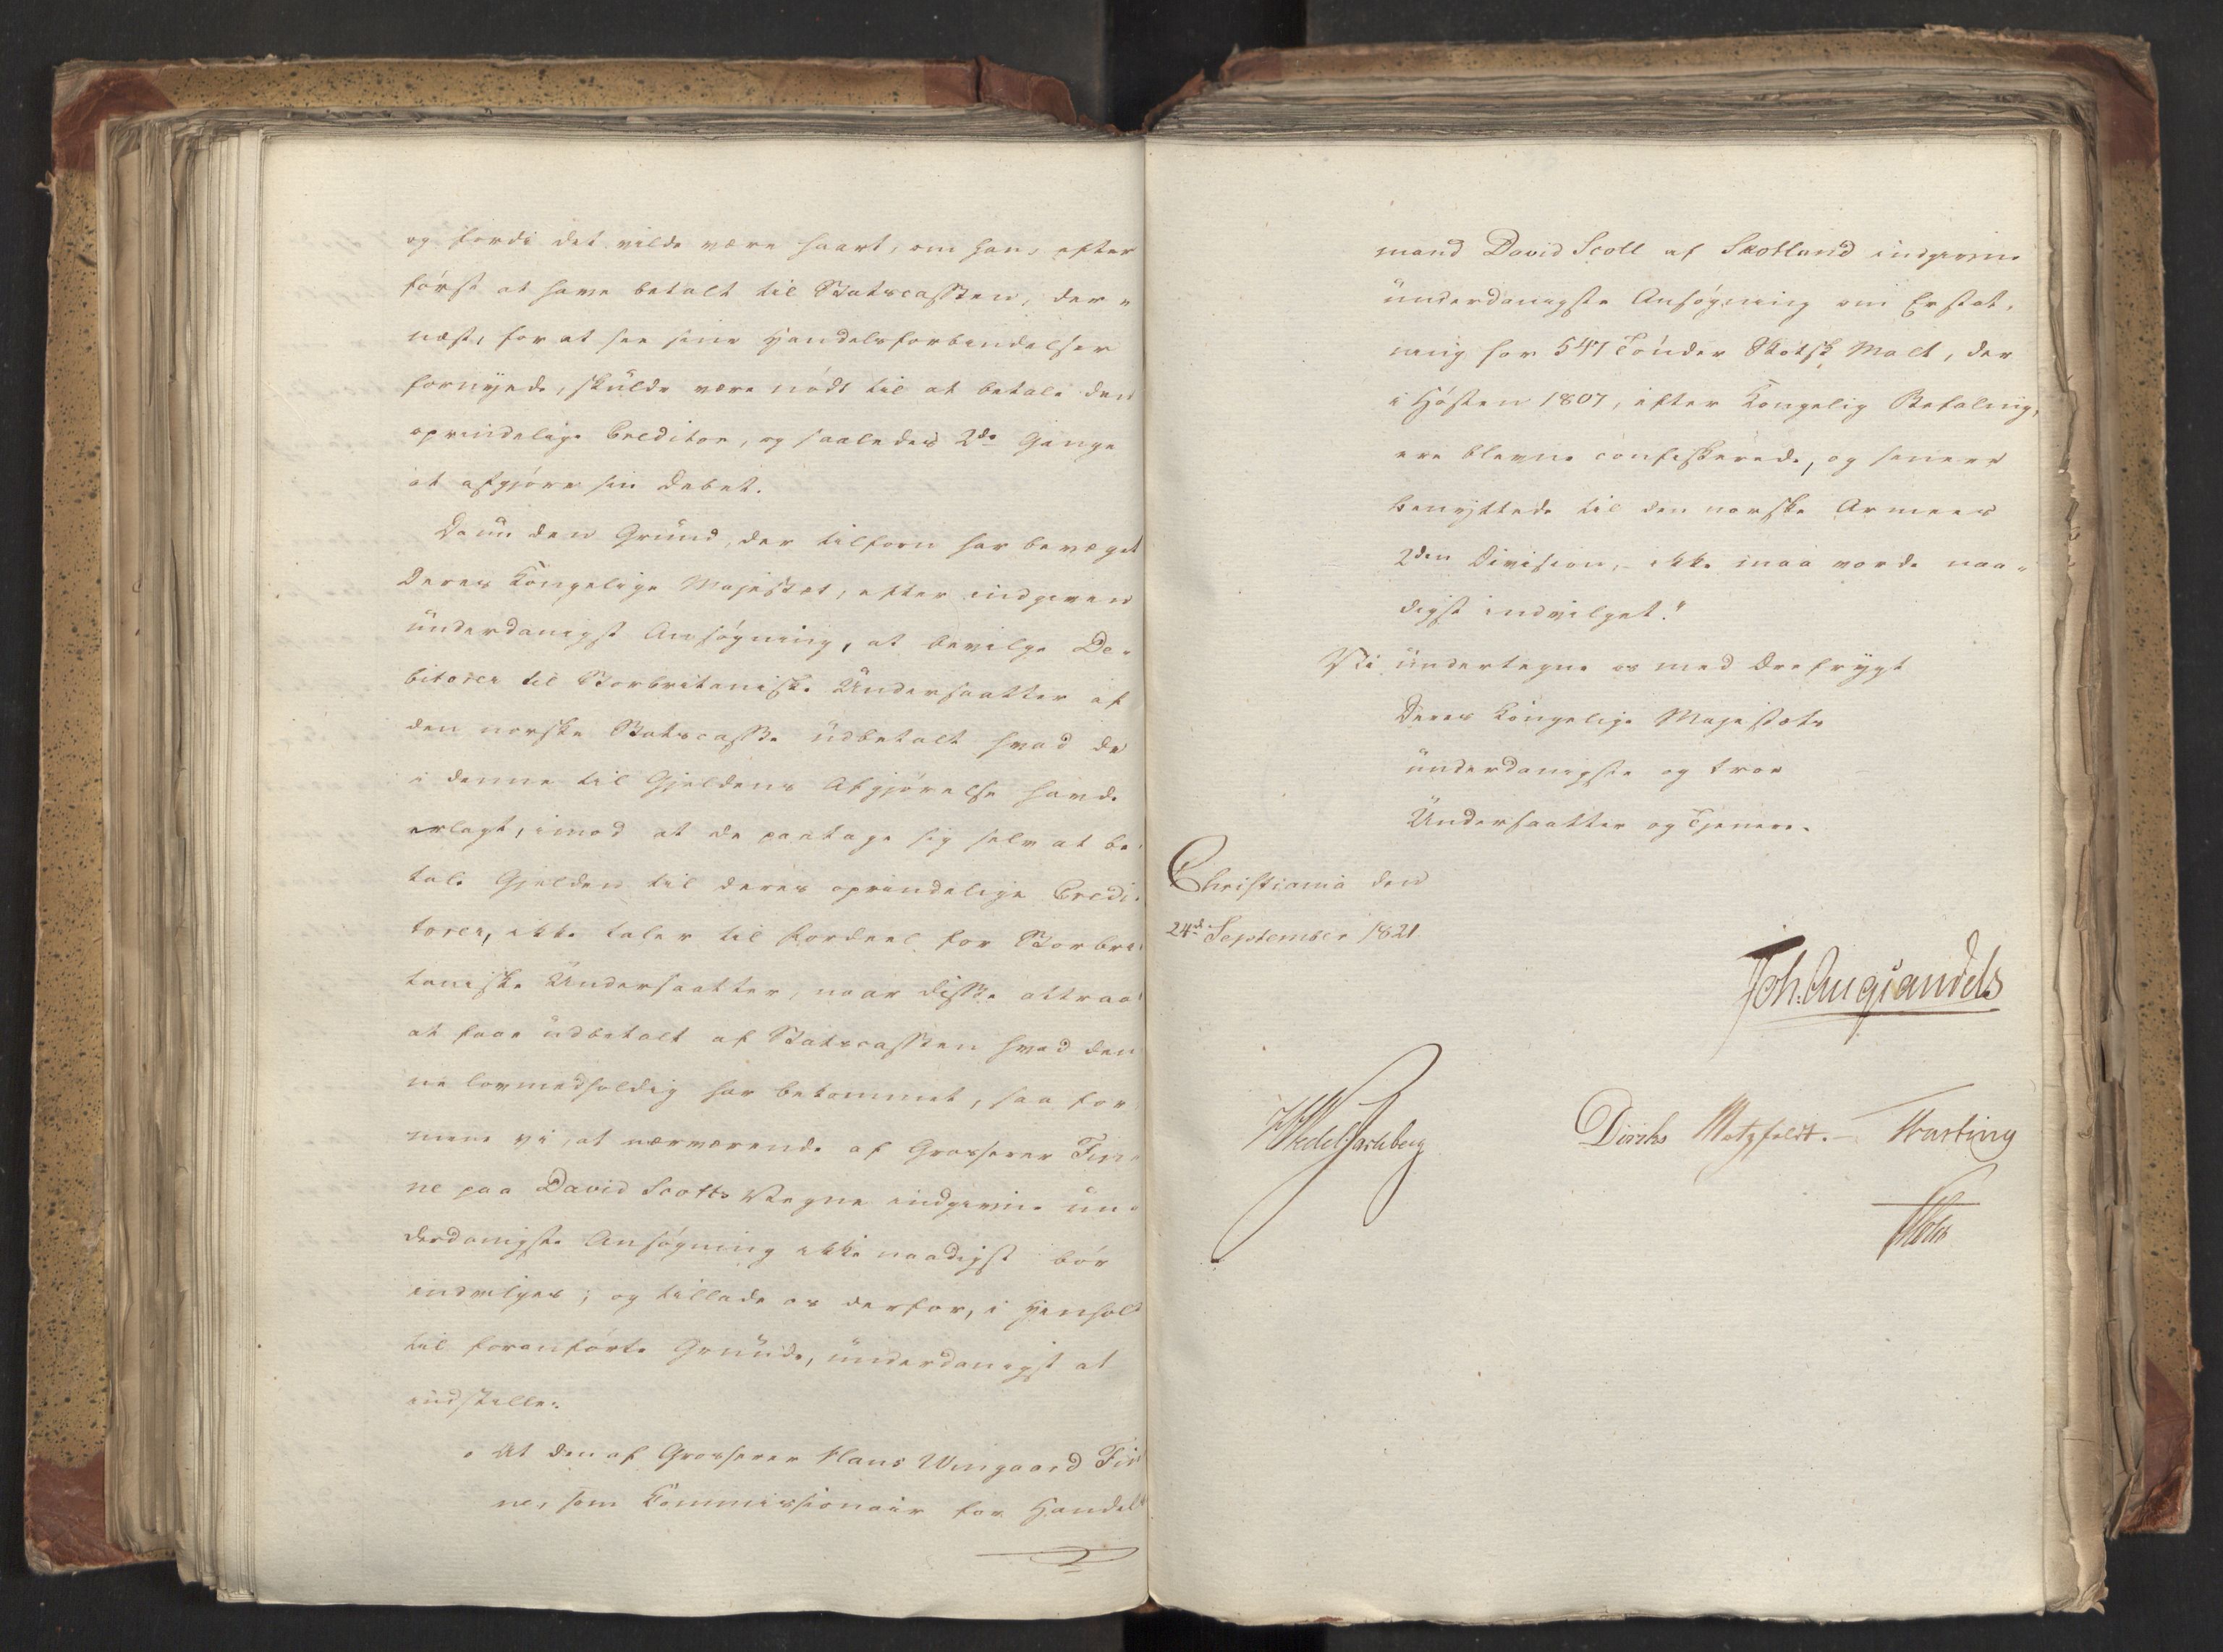 og fordi det vilde være haart, om han, efter
først at have betalt til Statscassen, der„
næst, for at see sine Handelsforbindelser
fornyede, skulde være nødt til at betale den
oprindelige Creditor, og saaledes 2de Gange
at afgjøre sin Debet.
Da nu den Grund, der tilforn har bevæget
Deres Kongelige Majestæt, efter indgiven
underdanigst Ansøgning, at bevilge De„
bitorer til Storbritaniske Undersaatter af
den norske Statscasse udbetalt hvad de
i denne til Gjeldens Afgjørelse havde
erlagt, imod at de paatage sig selv at be„
tale Gjelden til deres oprindelige Credi„
torer, ikke taler til Fordeel for Storbri„
taniske Undersaatter, naar disse attraae
at faae udbetalt af Statscassen hvad den
ne lovmedholdig har bekommet, saa for
mene vi, at nærværende af Grosserer Fin„
ne paa David Scotts Vegne indgivne un„
derdanigste Ansøgning ikke naadigst bør
indvilges; og tillade os derfor, i Henhold
til foranførte Grunde, underdanigst at
indstille:
„At den af Grosserer Hans Wingaard Fin
ne, som Kommissionair for Handels
mand David Scott af Skotland indgivne
underdanigste Ansøgning om Erstat„
ning for 547 Tønder Skotsk Malt, der
i Høsten 1807, efter Kongelig Befaling,
ere blevne confiskerede, og senere
benyttede til den norske Armees
2den Division, ikke maa vorde naa„
digst indvilget."
Vi undertegne os med Ærefrygt
Deres Kongelige Majestæts
underdanigste og troe
Undersaatter og Tjenere.
Christiania den
24d September 1821
Joh. Aug Sandels
HWedelJarlsberg Diriks Motzfeldt. Krarting
Holst